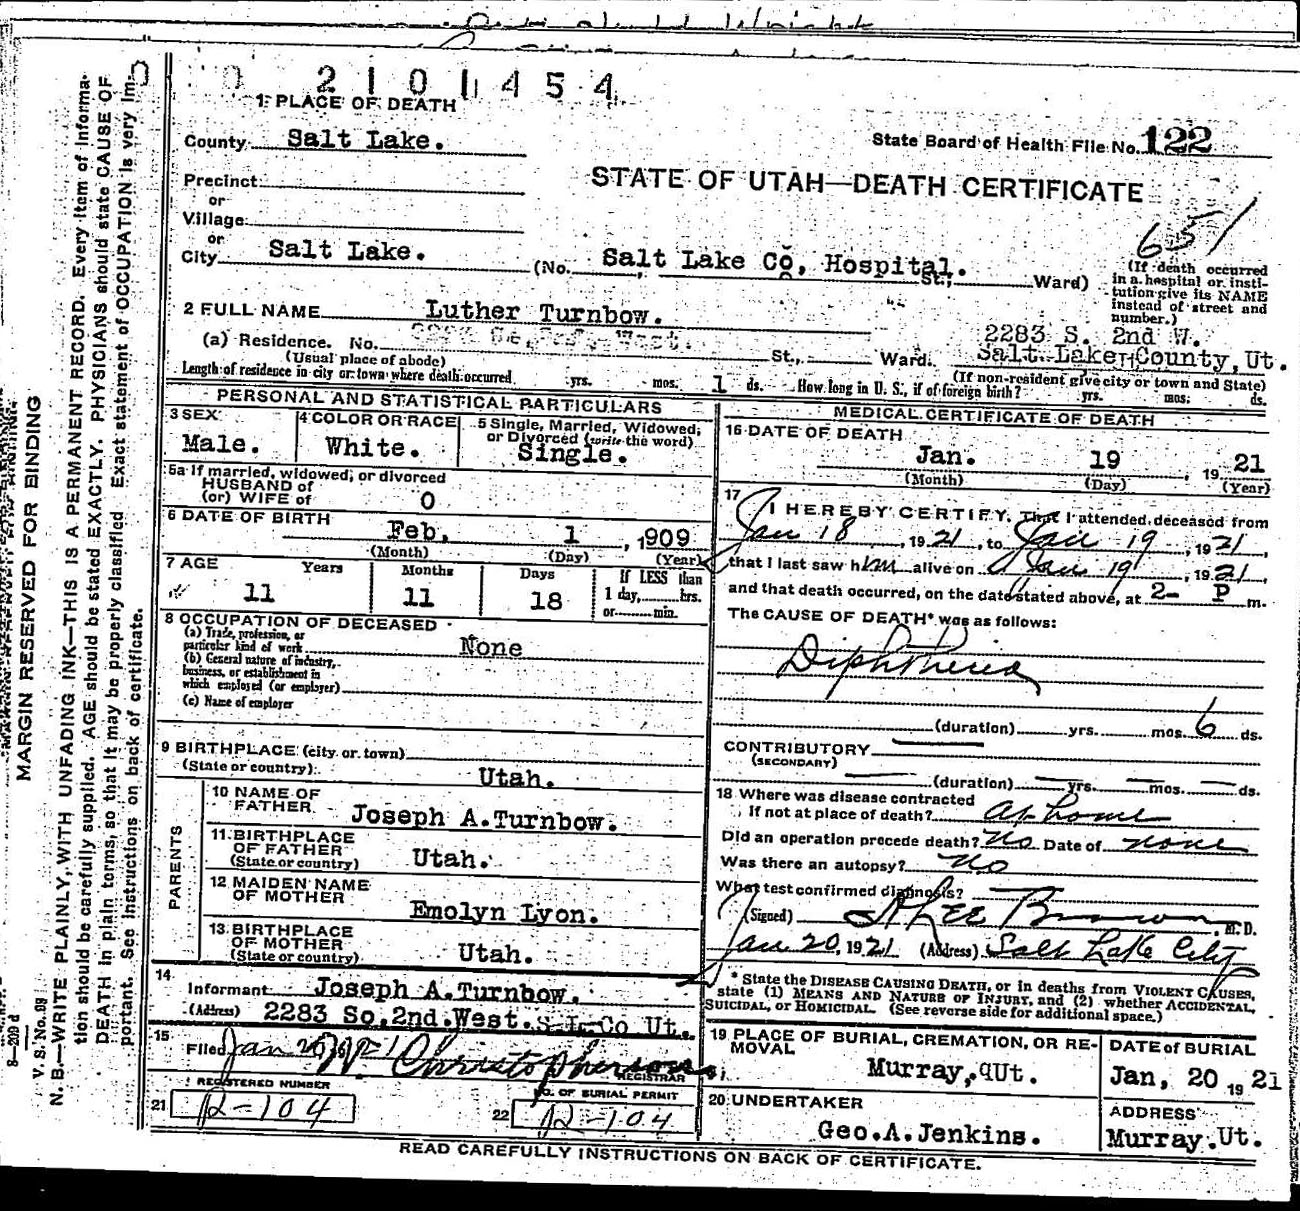 0 0 2 1 0 1 4 5 4
1. PLACE OF DEATH
County Salt Lake.
State Board of Health File No. 122
Precinct
or
Village
or
City Salt Lake.
STATE OF UTAH—DEATH CERTIFICATE
651
(No. Salt Lake Co, Hospital. St., Ward)
(If death occurred
in a hospital or insti-
tution give its NAME
instead of street and
number.)
2 FULL NAME Luther Turnbow.
(a) Residence. No. St., Ward. 2283 S. 2nd W.
Salt Lake, County, Ut.
(Usual place of abode)
(If non-resident give city or town and State)
Length of residence in city or town where death occurred yrs. mos. 1 ds. How long in U. S., if of foreign birth? yrs. mos. ds.
PERSONAL AND STATISTICAL PARTICULARS
3 SEX
Male.
4 COLOR OR RACE
White.
5 Single, Married, Widowed,
or Divorced (write the word)
Single.
5a If married, widowed, or divorced
HUSBAND of
(or) WIFE of 0
6 DATE OF BIRTH
Feb. 1 , 1909
(Month) (Day) (Year)
7 AGE Years Months Days If LESS than
11 11 18 1 day, hrs.
or min.
8 OCCUPATION OF DECEASED
(a) Trade, profession, or
particular kind of work None
(b) General nature of industry,
business, or establishment in
which employed (or employer)
(c) Name of employer
9 BIRTHPLACE (city or town)
(State or country) Utah.
PARENTS
10 NAME OF
FATHER Joseph A.Turnbow.
11 BIRTHPLACE
OF FATHER
(State or country) Utah.
12 MAIDEN NAME
OF MOTHER
Emolyn Lyon.
13 BIRTHPLACE
OF MOTHER
(State or country) Utah.
14
Informant Joseph A.Turnbow.
(Address) 2283 So.2nd.West. S.L.Co Ut.
15
Filed Jan Christopherson
REGISTRAR
REGISTERED NUMBER
21 R-104
NO. OF BURIAL PERMIT
22 R-104
MEDICAL CERTIFICATE OF DEATH
16 DATE OF DEATH
Jan. 19 , 1921
(Month) (Day) (Year)
17
I HEREBY CERTIFY, That I attended deceased from
Jan 18 , 1921, to Jan 19 , 1921,
that I last saw him alive on Jan 19 , 1921,
and that death occurred, on the date stated above, at 2- P m.
The CAUSE OF DEATH* was as follows:
Diphtheria
(duration) yrs. mos. 6 ds.
CONTRIBUTORY
(SECONDARY)
(duration) yrs. mos. ds.
18 Where was disease contracted
If not at place of death? at home
Did an operation precede death? No Date of none
Was there an autopsy? no
What test confirmed diagnosis?
(Signed) Lee Brown , M. D.
Jan 20, 1921 (Address) Salt Lake City
* State the DISEASE CAUSING DEATH, or in deaths from VIOLENT CAUSES,
state (1) MEANS AND NATURE OF INJURY, and (2) whether ACCIDENTAL,
SUICIDAL, or HOMICIDAL. (See reverse side for additional space.)
19 PLACE OF BURIAL, CREMATION, OR RE-
MOVAL
Murray, Ut.
DATE of BURIAL
Jan, 20 1921
20 UNDERTAKER
Geo.A.Jenkins.
ADDRESS
Murray.Ut.
READ CAREFULLY INSTRUCTIONS ON BACK OF CERTIFICATE.
MARGIN RESERVED FOR BINDING
V. S. No. 99
N. B.—WRITE PLAINLY, WITH UNFADING INK—THIS IS A PERMANENT RECORD. Every item of informa-
tion should be carefully supplied. AGE should be stated EXACTLY. PHYSICIANS should state CAUSE OF
DEATH in plain terms, so that it may be properly classified. Exact statement of OCCUPATION is very im-
portant. See instructions on back of certificate.